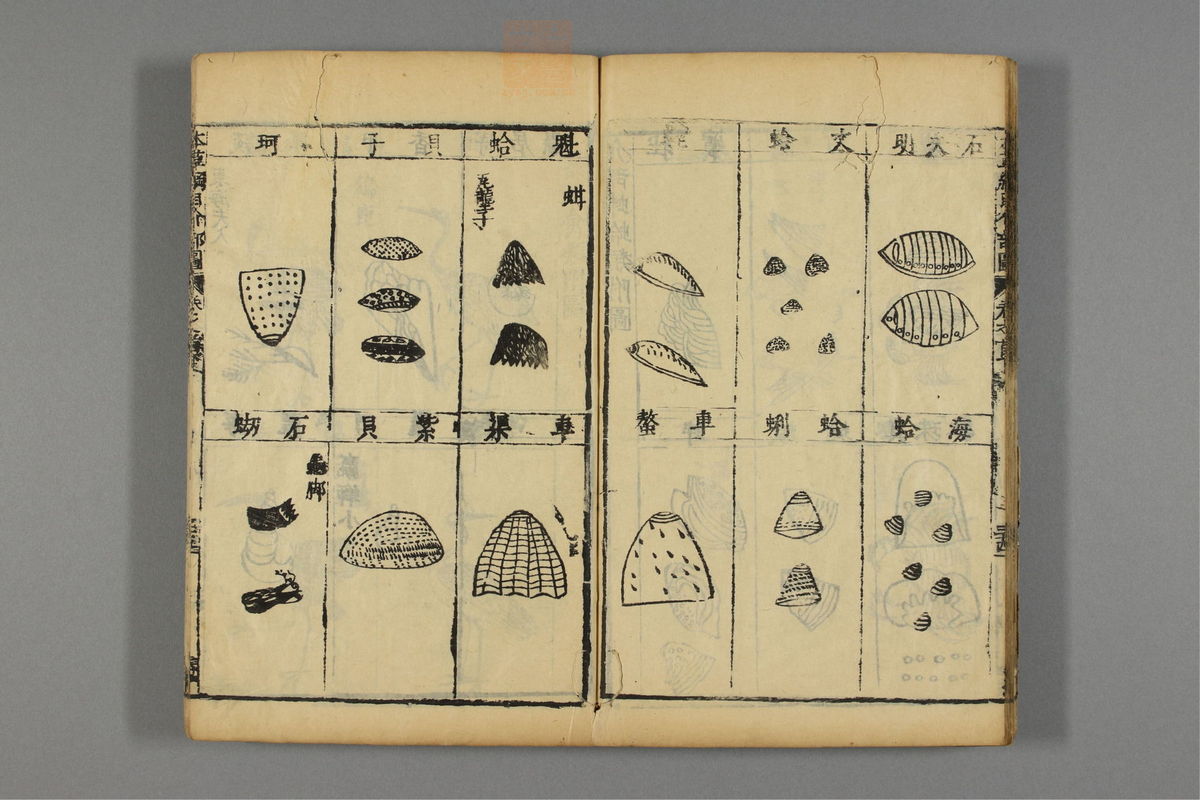 石决明
文蛤
海蛤
蛤蜊
車螯
魁蛤
蚶
瓦壟子
貝子
珂
車渠
紫貝
石蜐
龜脚
本草綱目介部圖